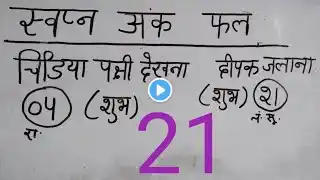 स्वप्न अंक फल
चिडिया पक्षी देखना दीपक जलाना
०४ (शुभ) (शुभ) २१
रा. नं. मू.
21